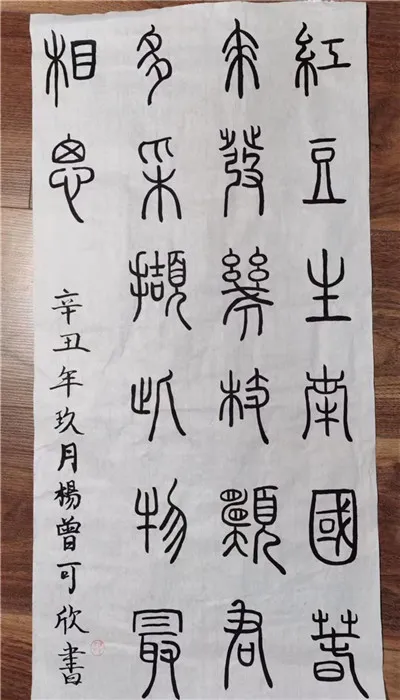 紅豆生南國萅
來發幾枝願君
多采擷此物最
相思
辛丑年玖月楊曾可欣書